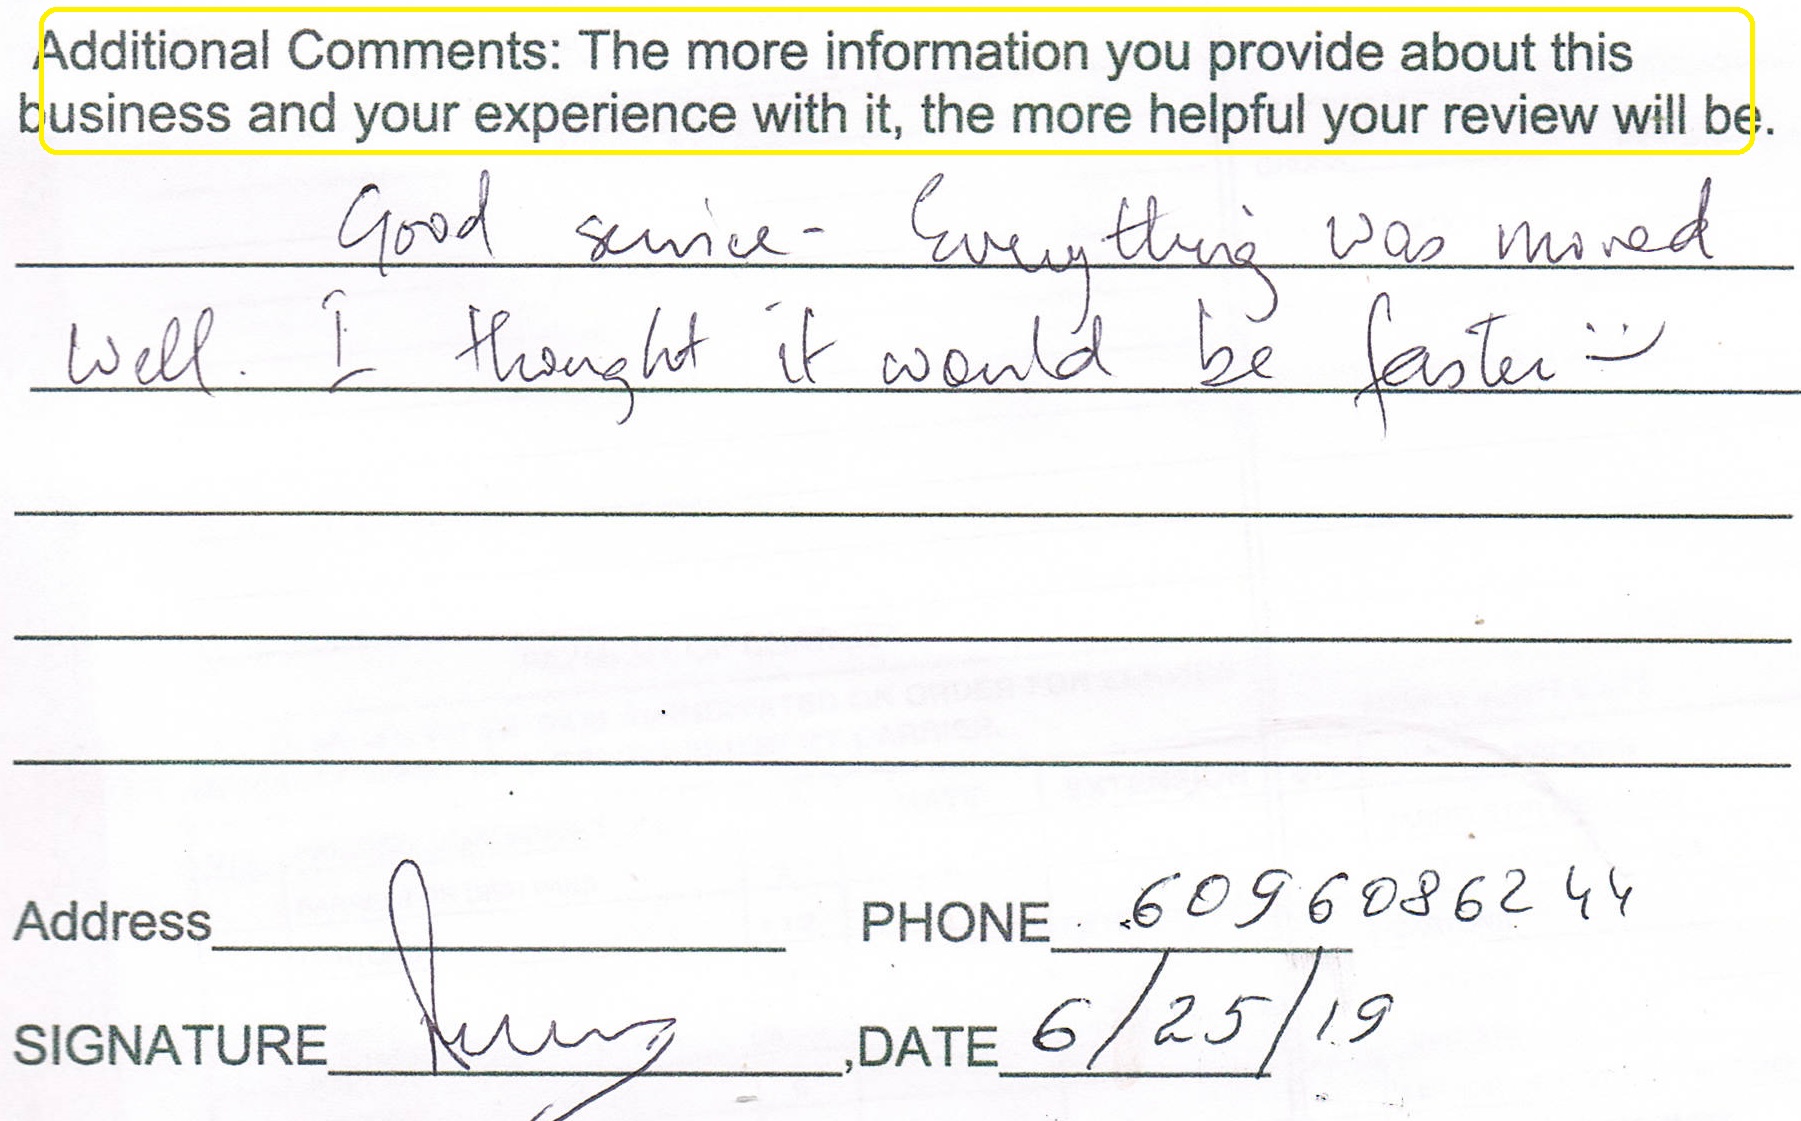 Additional Comments: The more information you provide about this
business and your experience with it, the more helpful your review will be.
Good service - Everything was moved
well. I thought it would be faster :)
Address PHONE 6096086244
SIGNATURE ,DATE 6/25/19